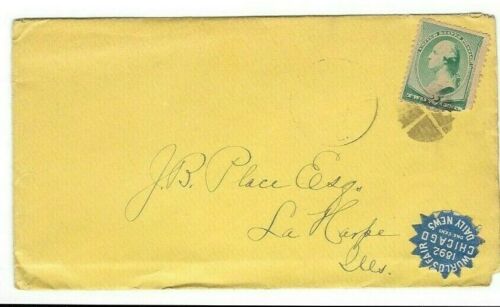 UNITED STATES POSTAGE
J. B. Place Esq.
La Harpe
Ills.
WORLD'S FAIR
1892
CHICAGO
ONE CENT
DAILY NEWS